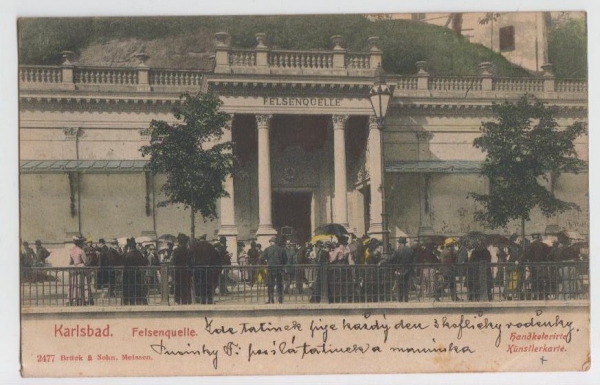 FELSENQUELLE
Karlsbad. Felsenquelle. Zde tatínek pije každý den 3 kofličky vodenky.
Handkolorirte
Künstlerkarte.
2477 Brück & Sohn, Meissen. posílá tatínek a maminka